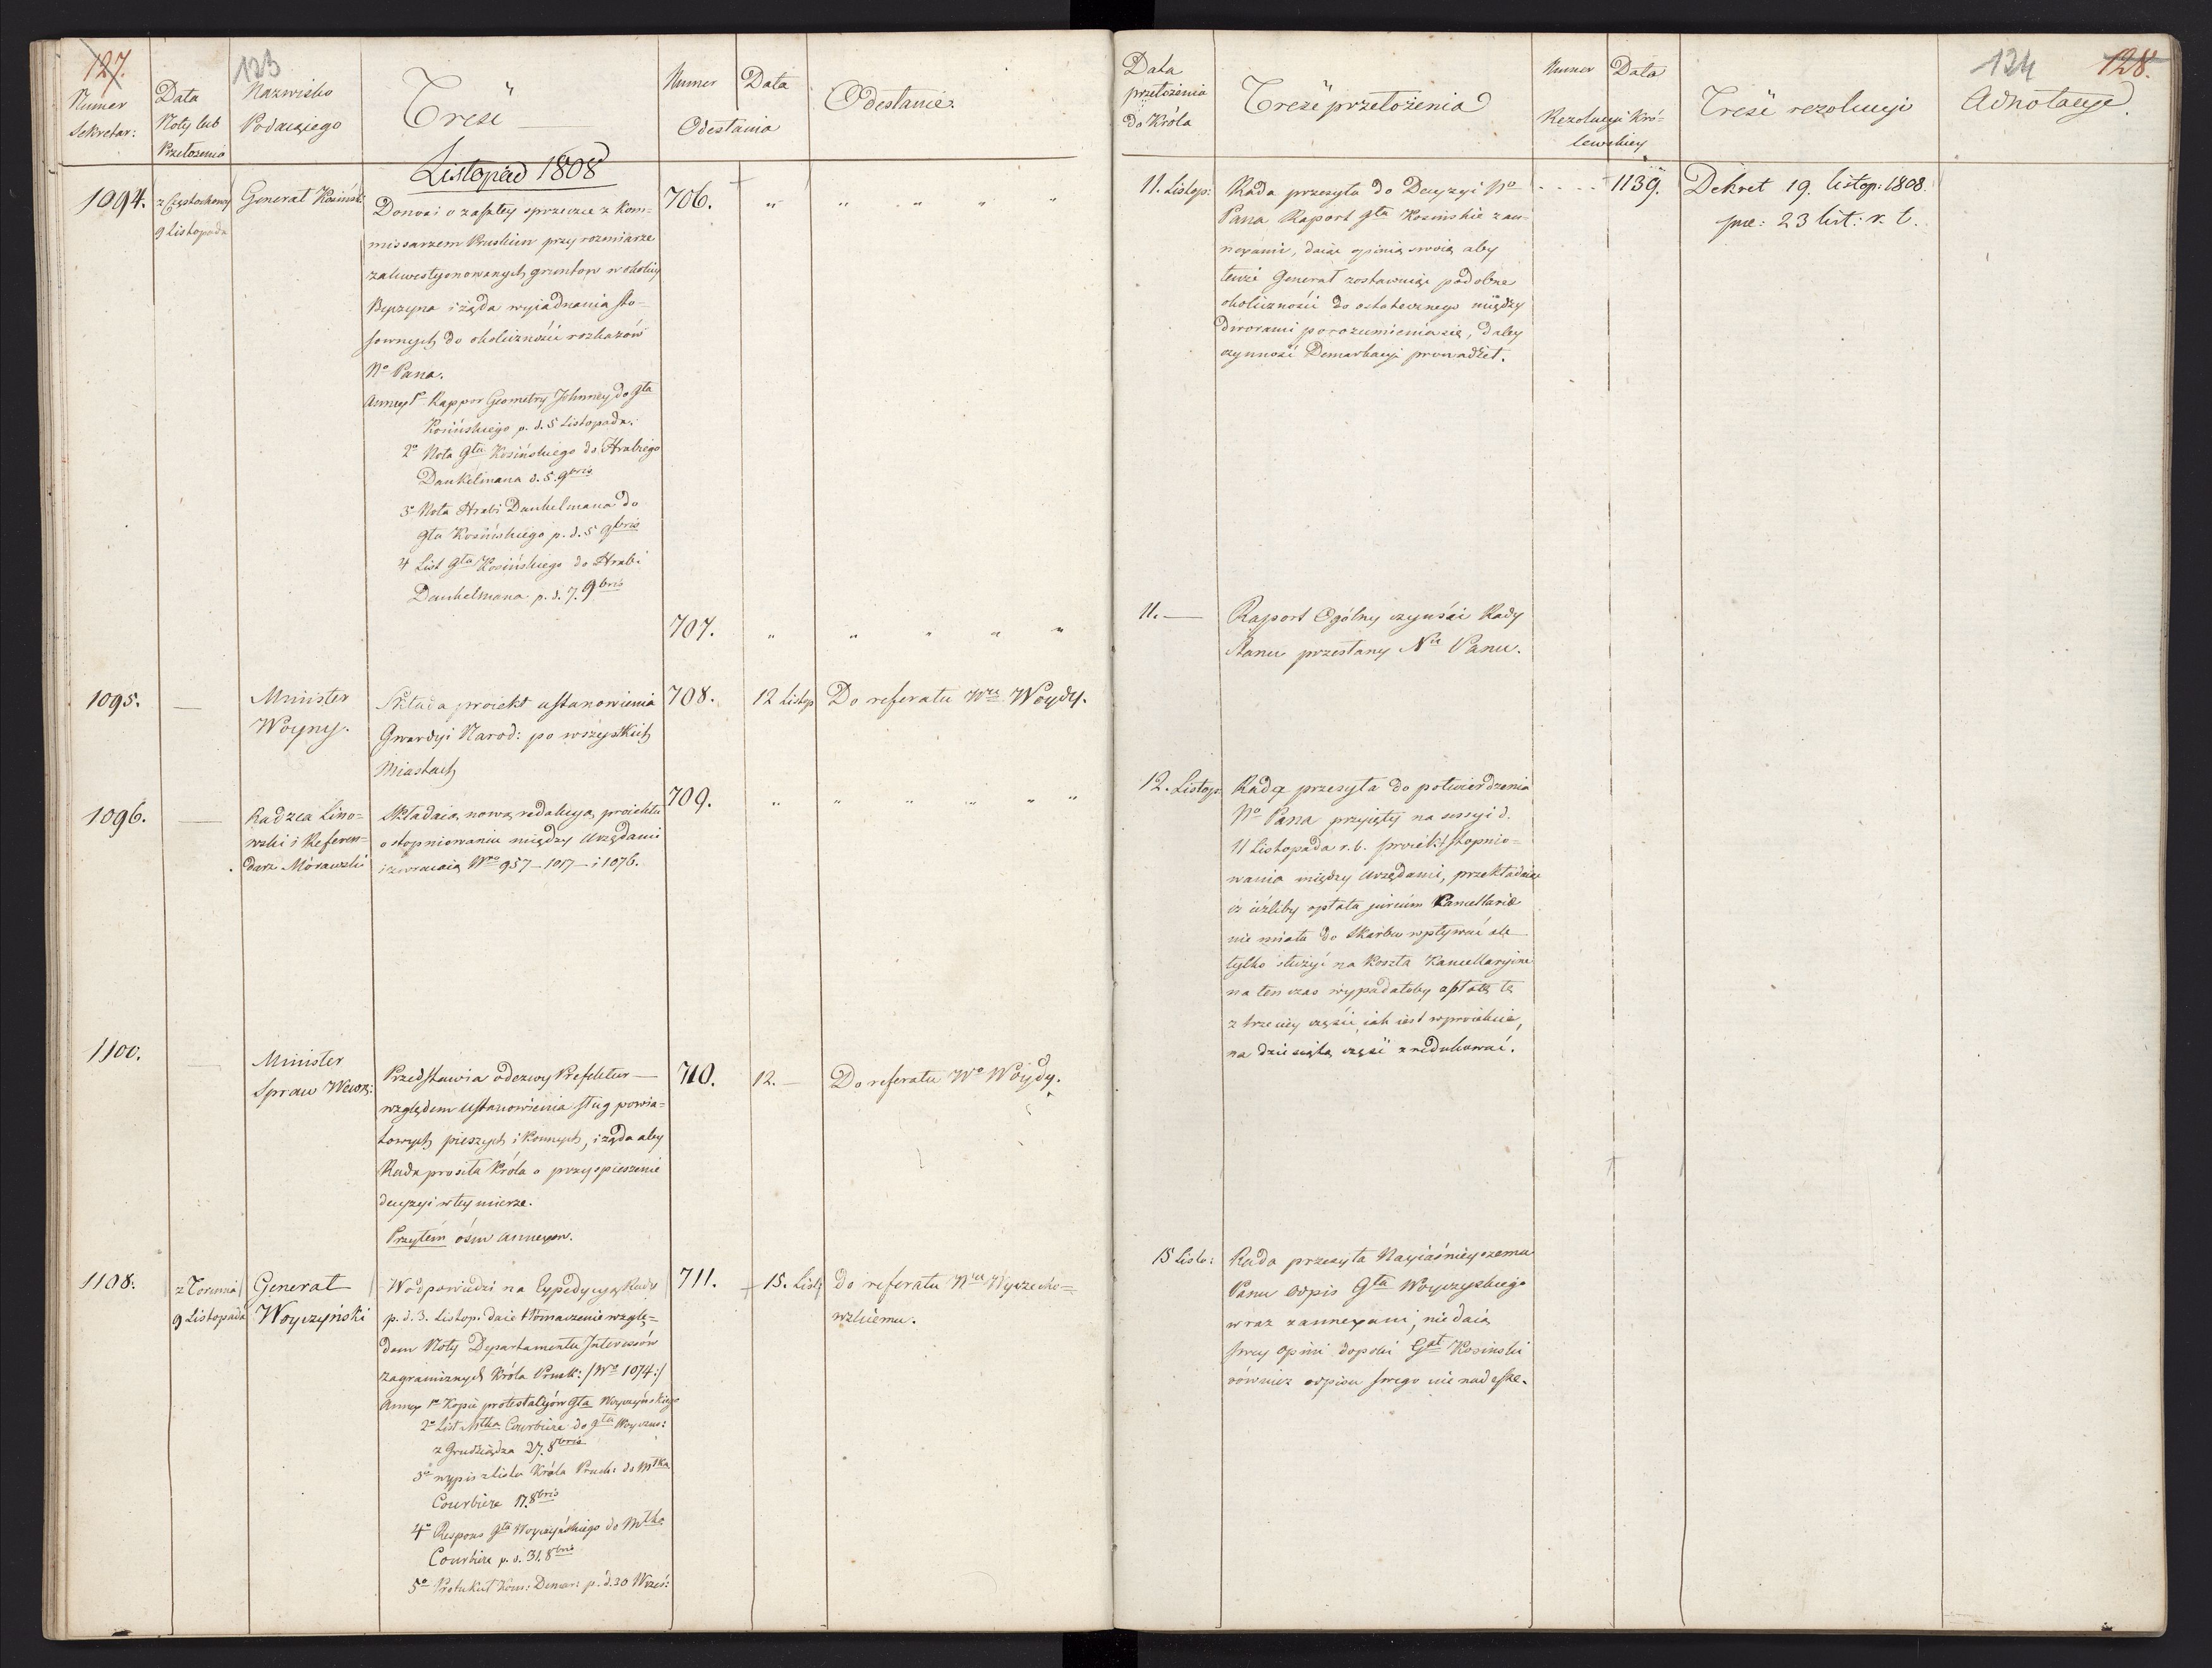 127.
123
Numer
Sekretar:
Data
Noty lub
Przełożenia
Nazwisko
Podaiącego
Treść
Numer
Data
Odesłania
Odesłanie
Listopad 1808
1094.
z Częstochowy
9 Listopada
Generał Kosiński
Donosi o zaszłey sprzeczce z Kom-
missarzem Pruskim przy rozmiarze
zakwestyonowanych gruntow w okolicy
i żąda wyiednania sto-
sownych do okoliczności rozkazów
No Pana.
Annexy 1o Rappor Geometry Johnney do Gła
Kosińskiego p. d. 5 Listopada.
2o Nota Gła Kosińskiego do Hrabiego
Dankelmana d. 5. 9bris
3o Nota Hrabi Dankelmana do
Gła Kosińskiego p. d. 5 9bris
4 List Gła Kosińskiego do Hrabi
Dankelmana p. d. 7. 9bris
706. " " " " "
707. " " " " "
1095.
—
Minister
Woyny.
Składa proiekt ustanowienia
Gwardyi Narod: po wszystkich
Miastach
708.
12 Listop
Do referatu Wu Woydy.
1096.
—
Radzca Lino=
wski i Referen=
darz Morawski
Składaią nową redakcyą proiektu
o stopniowaniu między Urzędami
i zwracaią No 957 – 1017 – i 1076.
709. " " " " " "
1100.
—
Minister
Spraw Wewn:
Przedstawia odezwy Prefektur —
względem ustanowienia sług powia=
towych pieszych i konnych, i żąda aby
Rada prosiła Króla o przyspieszenie
decyzyi w tey mierze.
Przytém ósm annexow.
710.
12. —
Do referatu Wo Woydy.
1108.
z Torunia
9 Listopada
Generał
Woyczyński
W odpowiedzi na Expedycyą Rady
p. d. 3. Listop. daie tłomaczenie wzglę=
dem Noty Departamentu Interessów
zagranicznych Króla Prusk: /: No 1074 :/
Annex 1o Kopie protestacyów Gła Woyczyńskiego
2o List Młka Courbiere do Gła Woyczyns:
z Grudziądza 27. 8bris
3o wypis z listu Króla Prusk: do Młka
Courbiere 17. 8bris
4o Respons Gła Woyczyńskiego do Młka
Courbiere p. d. 31. 8bris
5o Protokół Kom: Demar: p. d. 30 Wrześ:
711.
15. List:
Do referatu Wu Wyczecho=
wskiemu.
124
128.
Data
przełożenia
do Króla
Treść przełożenia
Numer
Data
Rezolucyi Kró-
lewskiey
Treść rezolucyi
Adnotacye.
11. Listop:
Rada przesyła do Decyzyi No
Pana Raport Gła Kosinskie z an-
nexami, daiąc opinią swoią aby
tenże Generał zostawuiąc podobne
okoliczności do ostatecznego między
Dworami porozumienia się, daley
czynność Demarkacyi prowadził.
. . . . 1139.
Dekret 19. listop: 1808.
pre: 23 list: r. t.
11. —
Raport Ogólny czynści Rady
Stanu przesłany No Panu.
12. Listop:
Rada przesyła do potwierdzenia
No Pana przyięty na sessyi d.
11 Listopada r. b. proiekt stopnio-
wania między Urzędami, przekładaiąc
iż ieźliby opłata jurium Cancellariæ
nie miała do Skarbu wpływać ale
tylko służyć na koszta Kancellaryine
na ten czas wypadałoby opłatę tę
z trzeciey części, iak iest w proiekcie,
na dziesiątą część zredukować.
15 Listo:
Rada przesyła Nayiaśnieyszemu
Panu Odpis Gła Woyczyskiego
wraz z annexami, nie daią
swey opinii dopoki Gał Kosinski
równiez odpisu swego nie nadeszle.